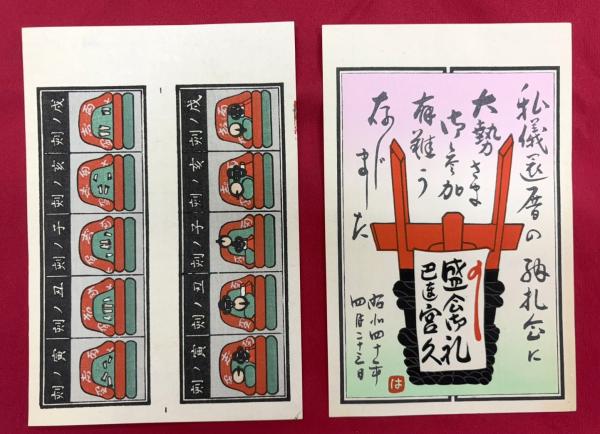 戌ノ刻
亥ノ刻
子ノ刻
丑ノ刻
寅ノ刻
戌ノ刻
亥ノ刻
子ノ刻
丑ノ刻
寅ノ刻
私儀還暦の納札会に
大勢さま
御参加
有難う
存じました
のし
盛会御礼
巴連宮久
昭和四十一年
四月二十三日
は